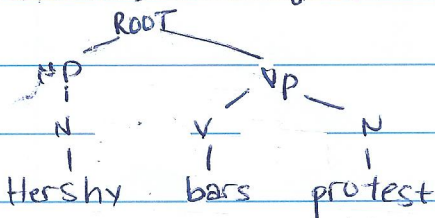 ROOT
NP VP
N V N
Hershy bars protest